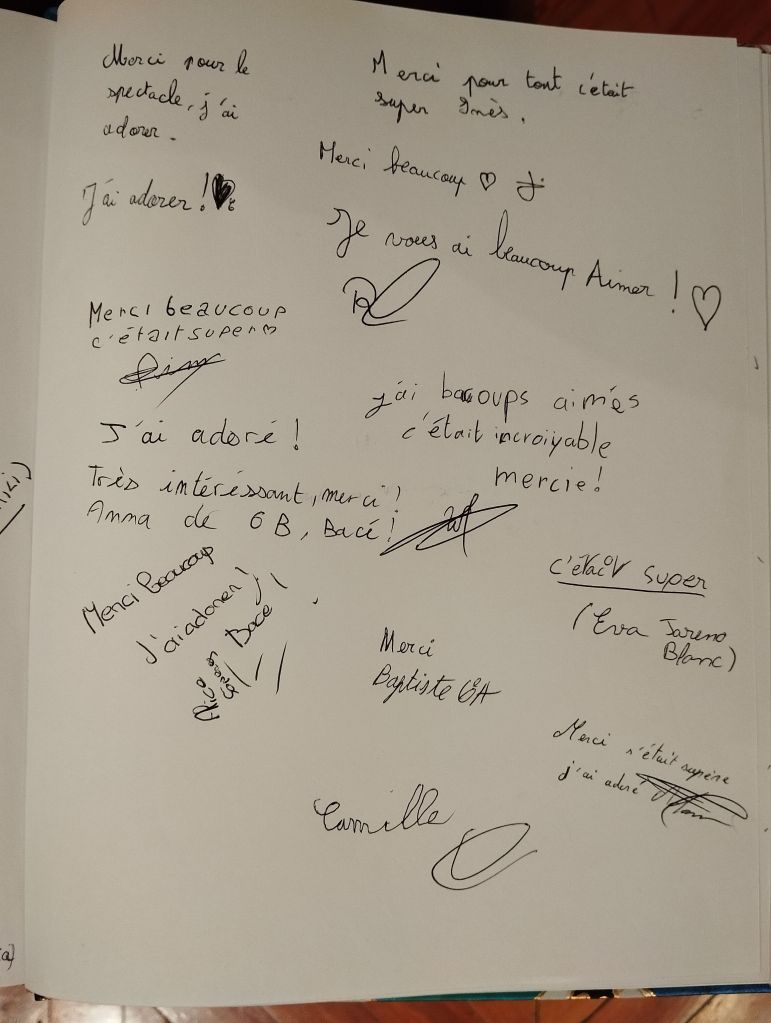 Merci pour le
spectacle, j'ai
adorer.
Merci pour tout c'était
super Inès.
Merci beaucoup ♡
J'ai adorer ! ♥
Je vous ai beaucoup Aimer ! ♡
Merci beaucoup
c'était super ♡
j'ai bacoups aimés
c'était incroiyable
mercie !
J'ai adoré !
Très intéréssant, merci !
Anna de 6B, Bacé !
Merci beaucoup
J'ai adorer !
Bacé !
Alice
c'était super
(Eva Jareno
Blanc)
Merci
Baptiste 6°A
Merci s'était supère
j'ai adoré
Camille